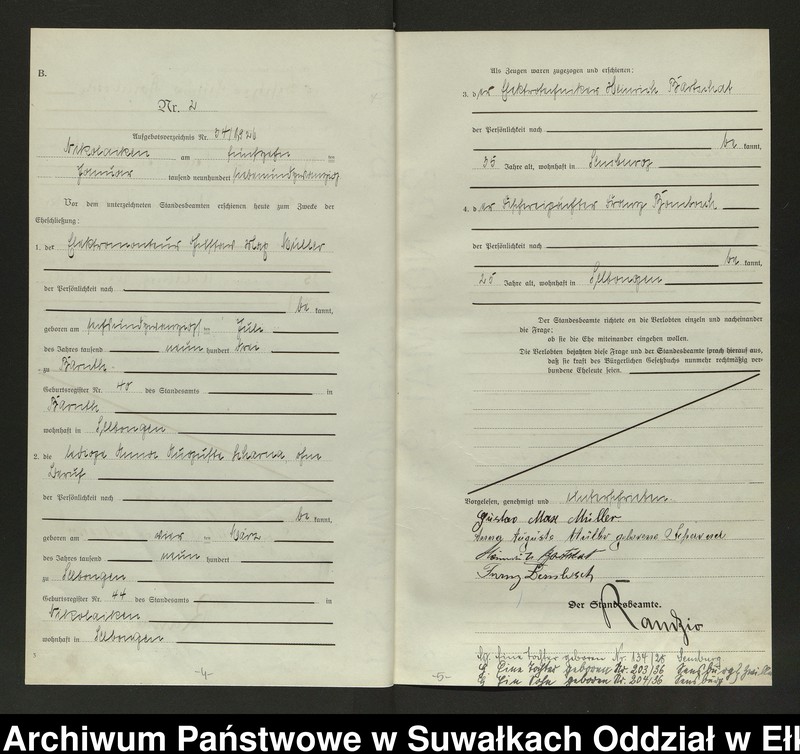 B.
Nr. 2
Aufgebotsverzeichnis Nr. 54/1926
Nikolaiken am fünfzehn ten
Januar tausend neunhundert siebenundzwanzig
Vor dem unterzeichneten Standesbeamten erschienen heute zum Zwecke der
Eheschließung:
1. der Elektromonteur Gustav Max Müller
der Persönlichkeit nach
be kannt,
geboren am ten Juli
des Jahres tausend neun hundert drei
zu
Geburtsregister Nr. 40 des Standesamts in
wohnhaft in Selbongen
2. die ledige Anna Auguste Scharna, ohne
Beruf
der Persönlichkeit nach
be kannt,
geboren am vier ten März
des Jahres tausend neun hundert
zu Selbongen
Geburtsregister Nr. 44 des Standesamts in
Nikolaiken
wohnhaft in Selbongen
-4-
Als Zeugen waren zugezogen und erschienen:
3. der Elektrotechniker Heinrich Bartschat
der Persönlichkeit nach
be kannt,
35 Jahre alt, wohnhaft in Sensburg
4. der Fischereipächter Franz
der Persönlichkeit nach
be kannt,
25 Jahre alt, wohnhaft in Selbongen
Der Standesbeamte richtete an die Verlobten einzeln und nacheinander
die Frage:
ob sie die Ehe miteinander eingehen wollen.
Die Verlobten bejahten diese Frage und der Standesbeamte sprach hierauf aus,
daß sie kraft des Bürgerlichen Gesetzbuchs nunmehr rechtmäßig ver-
bundene Eheleute seien.
Vorgelesen, genehmigt und unterschrieben
Gustav Max Müller
Anna Auguste Müller geborene Scharna
Heinrich Bartschat
Franz
Der Standesbeamte.
Randzio
Eine Tochter geboren Nr. 134/28 Sensburg
Eine Tochter geboren Nr. 203/36 Sensburg
Ein Sohn geboren Nr. 204/36 Sensburg
-5-
Archiwum Państwowe w Suwałkach Oddział w Eł